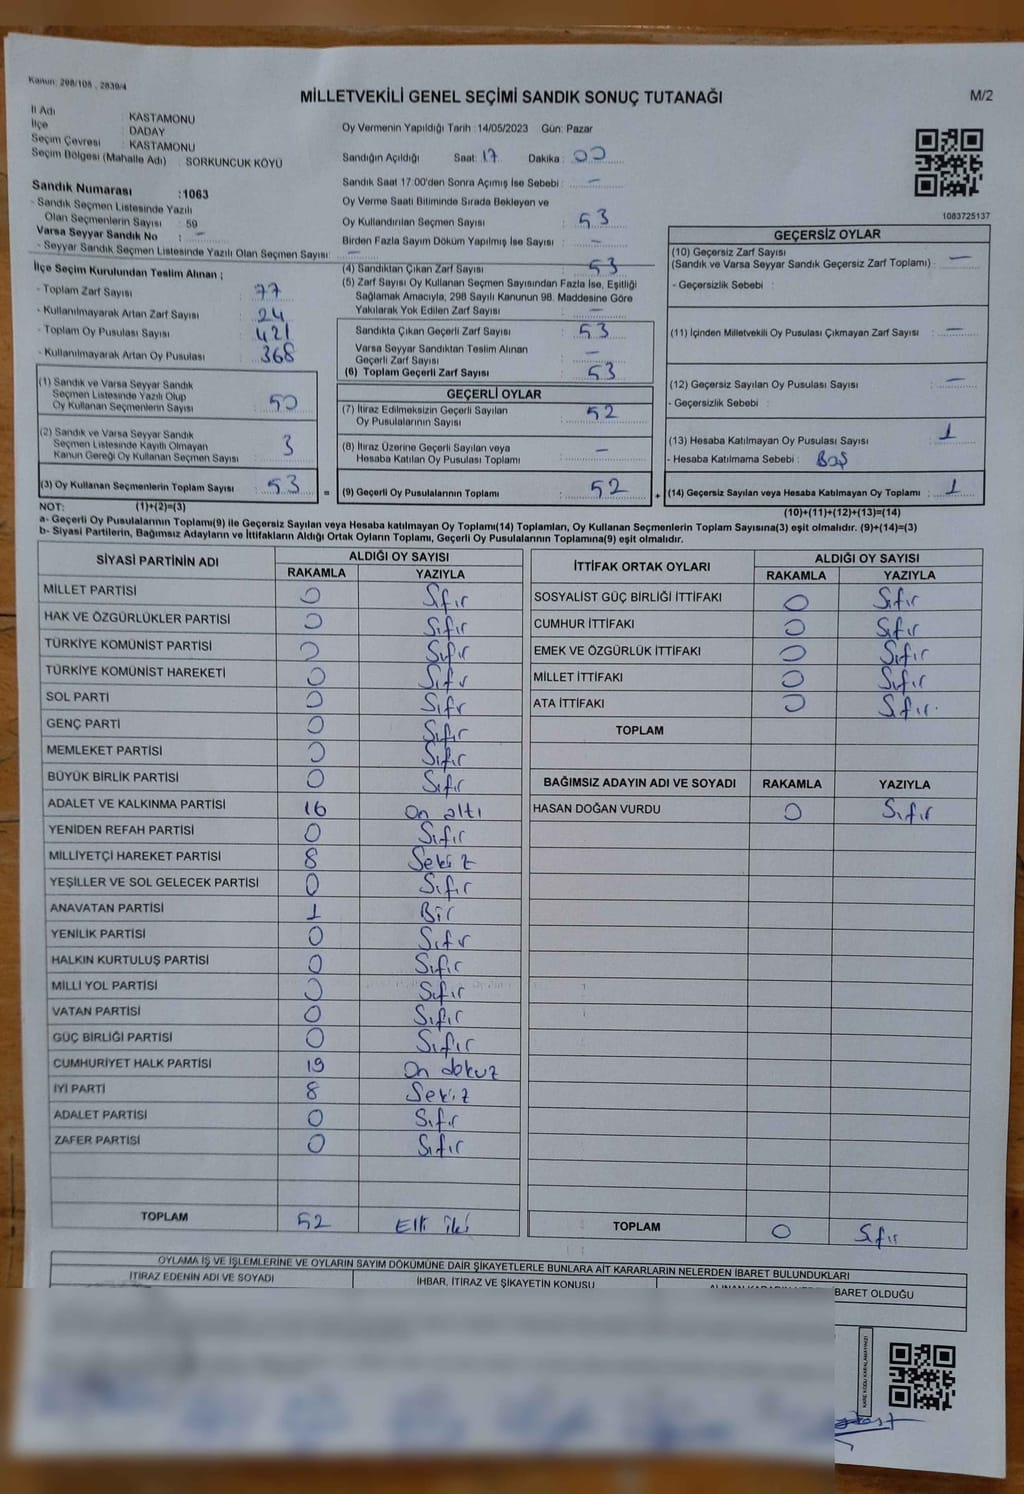 Kanun: 298/105 , 2839/4
MİLLETVEKİLİ GENEL SEÇİMİ SANDIK SONUÇ TUTANAĞI
M/2
İl Adı : KASTAMONU
İlçe : DADAY
Seçim Çevresi : KASTAMONU
Seçim Bölgesi (Mahalle Adı) : SORKUNCUK KÖYÜ
Sandık Numarası :1063
- Sandık Seçmen Listesinde Yazılı
Olan Seçmenlerin Sayısı : 59
Varsa Seyyar Sandık No : -
- Seyyar Sandık Seçmen Listesinde Yazılı Olan Seçmen Sayısı: -
İlçe Seçim Kurulundan Teslim Alınan ;
- Toplam Zarf Sayısı 77
- Kullanılmayarak Artan Zarf Sayısı 24
- Toplam Oy Pusulası Sayısı 421
- Kullanılmayarak Artan Oy Pusulası 368
(1) Sandık ve Varsa Seyyar Sandık
Seçmen Listesinde Yazılı Olup
Oy Kullanan Seçmenlerin Sayısı 50
(2) Sandık ve Varsa Seyyar Sandık
Seçmen Listesinde Kayıtlı Olmayan
Kanun Gereği Oy Kullanan Seçmen Sayısı 3
(3) Oy Kullanan Seçmenlerin Toplam Sayısı 53 =
Oy Vermenin Yapıldığı Tarih :14/05/2023 Gün: Pazar
Sandığın Açıldığı Saat: 17 Dakika : 00
Sandık Saat 17:00'den Sonra Açımış İse Sebebi : -
Oy Verme Saati Bitiminde Sırada Bekleyen ve
Oy Kullandırılan Seçmen Sayısı : 53
Birden Fazla Sayım Döküm Yapılmış İse Sayısı : -
(4) Sandıktan Çıkan Zarf Sayısı 53
(5) Zarf Sayısı Oy Kullanan Seçmen Sayısından Fazla İse, Eşitliği
Sağlamak Amacıyla, 298 Sayılı Kanunun 98. Maddesine Göre
Yakılarak Yok Edilen Zarf Sayısı : -
Sandıkta Çıkan Geçerli Zarf Sayısı : 53
Varsa Seyyar Sandıktan Teslim Alınan
Geçerli Zarf Sayısı : -
(6) Toplam Geçerli Zarf Sayısı : 53
GEÇERLİ OYLAR
(7) İtiraz Edilmeksizin Geçerli Sayılan
Oy Pusulalarının Sayısı : 52
(8) İtiraz Üzerine Geçerli Sayılan veya
Hesaba Katılan Oy Pusulası Toplamı : -
(9) Geçerli Oy Pusulalarının Toplamı : 52 +
1083725137
GEÇERSİZ OYLAR
(10) Geçersiz Zarf Sayısı
(Sandık ve Varsa Seyyar Sandık Geçersiz Zarf Toplamı) : -
- Geçersizlik Sebebi :
(11) İçinden Milletvekili Oy Pusulası Çıkmayan Zarf Sayısı : -
(12) Geçersiz Sayılan Oy Pusulası Sayısı : -
- Geçersizlik Sebebi :
(13) Hesaba Katılmayan Oy Pusulası Sayısı : 1
- Hesaba Katılmama Sebebi : Boş
(14) Geçersiz Sayılan veya Hesaba Katılmayan Oy Toplamı : 1
NOT: (1)+(2)=(3) (10)+(11)+(12)+(13)=(14)
a- Geçerli Oy Pusulalarının Toplamı(9) ile Geçersiz Sayılan veya Hesaba katılmayan Oy Toplamı(14) Toplamları, Oy Kullanan Seçmenlerin Toplam Sayısına(3) eşit olmalıdır. (9)+(14)=(3)
b- Siyasi Partilerin, Bağımsız Adayların ve İttifakların Aldığı Ortak Oyların Toplamı, Geçerli Oy Pusulalarının Toplamına(9) eşit olmalıdır.
SİYASİ PARTİNİN ADI ALDIĞI OY SAYISI
RAKAMLA YAZIYLA
MİLLET PARTİSİ 0 Sıfır
HAK VE ÖZGÜRLÜKLER PARTİSİ 0 Sıfır
TÜRKİYE KOMÜNİST PARTİSİ 0 Sıfır
TÜRKİYE KOMÜNİST HAREKETİ 0 Sıfır
SOL PARTİ 0 Sıfır
GENÇ PARTİ 0 Sıfır
MEMLEKET PARTİSİ 0 Sıfır
BÜYÜK BİRLİK PARTİSİ 0 Sıfır
ADALET VE KALKINMA PARTİSİ 16 On altı
YENİDEN REFAH PARTİSİ 0 Sıfır
MİLLİYETÇİ HAREKET PARTİSİ 8 Sekiz
YEŞİLLER VE SOL GELECEK PARTİSİ 0 Sıfır
ANAVATAN PARTİSİ 1 Bir
YENİLİK PARTİSİ 0 Sıfır
HALKIN KURTULUŞ PARTİSİ 0 Sıfır
MİLLİ YOL PARTİSİ 0 Sıfır
VATAN PARTİSİ 0 Sıfır
GÜÇ BİRLİĞİ PARTİSİ 0 Sıfır
CUMHURİYET HALK PARTİSİ 19 On dokuz
İYİ PARTİ 8 Sekiz
ADALET PARTİSİ 0 Sıfır
ZAFER PARTİSİ 0 Sıfır
TOPLAM 52 Elli iki
İTTİFAK ORTAK OYLARI ALDIĞI OY SAYISI
RAKAMLA YAZIYLA
SOSYALİST GÜÇ BİRLİĞİ İTTİFAKI 0 Sıfır
CUMHUR İTTİFAKI 0 Sıfır
EMEK VE ÖZGÜRLÜK İTTİFAKI 0 Sıfır
MİLLET İTTİFAKI 0 Sıfır
ATA İTTİFAKI 0 Sıfır.
TOPLAM
BAĞIMSIZ ADAYIN ADI VE SOYADI RAKAMLA YAZIYLA
HASAN DOĞAN VURDU 0 Sıfır
TOPLAM 0 Sıfır
OYLAMA İŞ VE İŞLEMLERİNE VE OYLARIN SAYIM DÖKÜMÜNE DAİR ŞİKAYETLERLE BUNLARA AİT KARARLARIN NELERDEN İBARET BULUNDUKLARI
İTİRAZ EDENİN ADI VE SOYADI İHBAR, İTİRAZ VE ŞİKAYETİN KONUSU İBARET OLDUĞU